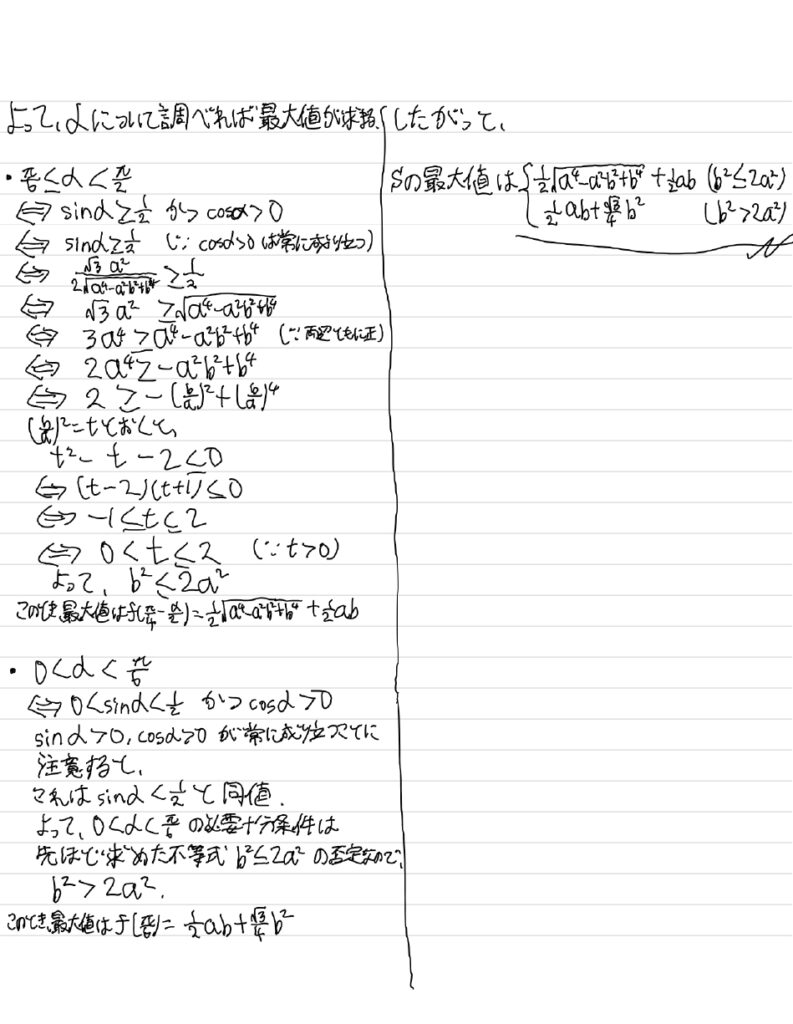 よって、αについて調べれば最大値が求まる。
・π/6≦α<π/2
⇔ sinα≧1/2 かつ cosα>0
⇔ sinα≧1/2 (∵ cosα>0は常に成り立つ)
⇔ √3a²/(2√(a⁴-a²b²+b⁴)) ≧1/2
⇔ √3a² ≧√(a⁴-a²b²+b⁴)
⇔ 3a⁴≧a⁴-a²b²+b⁴ (∵両辺ともに正)
⇔ 2a⁴≧-a²b²+b⁴
⇔ 2≧-(b/a)²+(b/a)⁴
(b/a)²=tとおくと、
t²-t-2≦0
⇔ (t-2)(t+1)≦0
⇔ -1≦t≦2
⇔ 0<t≦2 (∵t>0)
よって、b²≦2a²
このとき、最大値はf(π/4-α/2)=1/2√(a⁴-a²b²+b⁴)+1/2ab
・0<α<π/6
⇔ 0<sinα<1/2 かつ cosα>0
sinα>0, cosα>0が常に成り立つことに
注意すると、
これは sinα<1/2 と同値.
よって、0<α<π/6 の必要十分条件は
先ほど求めた不等式 b²≦2a² の否定なので、
b²>2a².
このとき、最大値は f(π/6)=1/2ab+√3/4b²
したがって、
Sの最大値は{1/2√(a⁴-a²b²+b⁴)+1/2ab (b²≦2a²)
1/2ab+√3/4b² (b²>2a²)